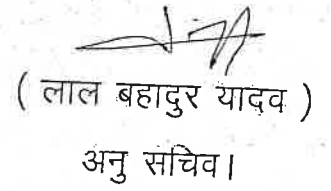 ( लाल बहादुर यादव )
अनु सचिव।